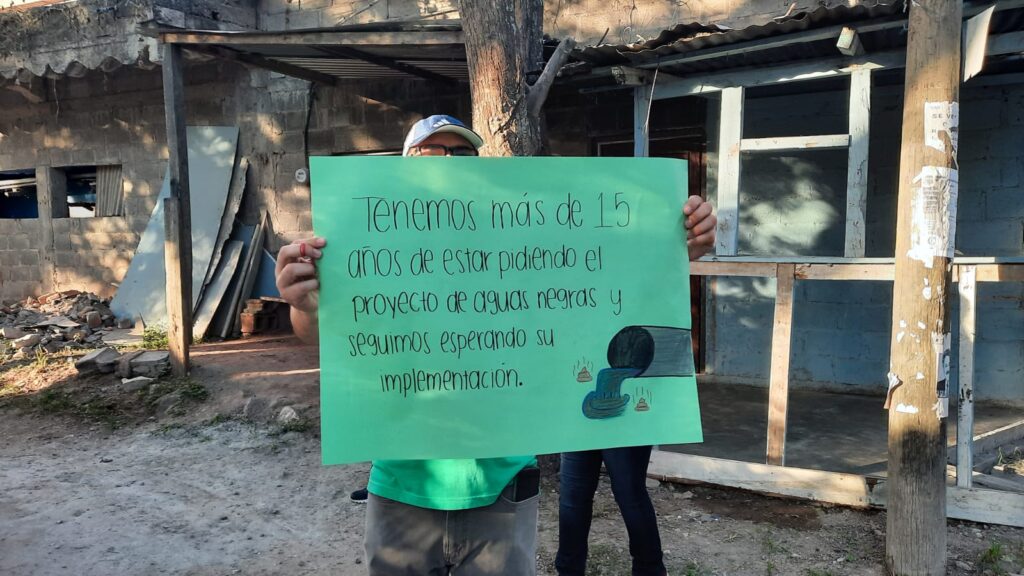 Tenemos más de 15
años de estar pidiendo el
proyecto de aguas negras y
seguimos esperando su
implementación.
SE VE